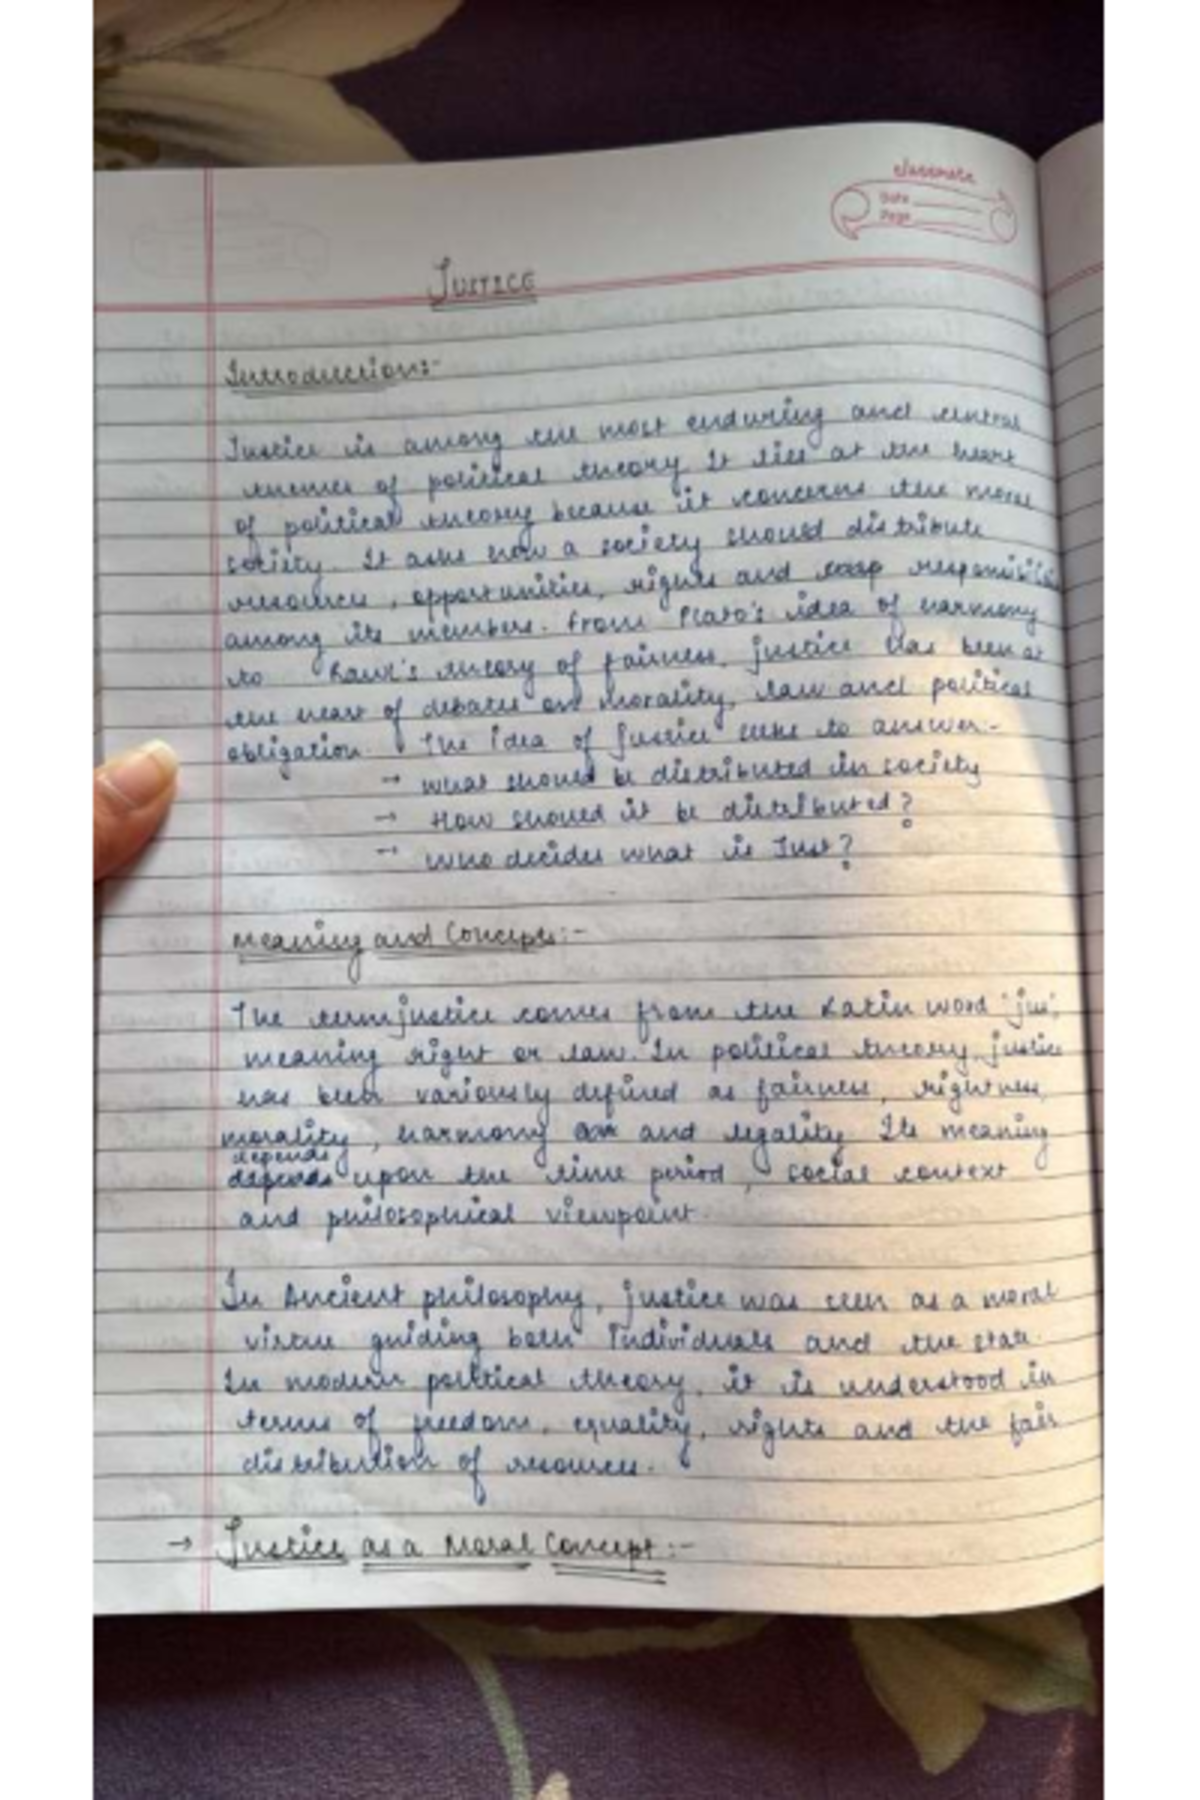 classmate
Date
Page
JUSTICE
Introduction:-
Justice is among the most enduring and central
themes of political theory. It lies at the heart
of political theory because it concerns the moral
society. It asks how a society should distribute
resources, opportunities, rights and responsibilities
among its members. From Plato's idea of harmony
to Rawl's theory of fairness, justice has been at
the heart of debates on morality, law and political
obligation. The idea of justice seeks to answer:-
→ what should be distributed in society
→ How should it be distributed?
→ who decides what is Just?
Meaning and Concepts:-
The term justice comes from the Latin word 'jus',
meaning right or law. In political theory, justice
has been variously defined as fairness, rightness,
morality, harmony and legality. Its meaning
depends
depends upon the time period, social context
and philosophical viewpoint.
In Ancient philosophy, justice was seen as a moral
virtue guiding both individuals and the state.
In modern political theory, it is understood in
terms of freedom, equality, rights and the fair
distribution of resources.
→ Justice as a Moral Concept:-